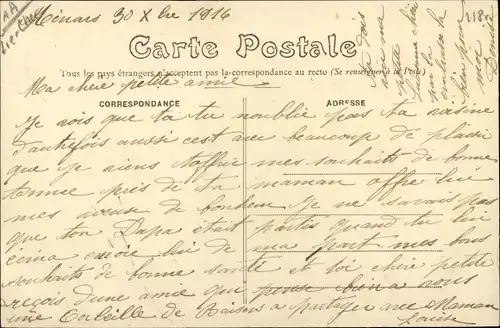 Ménars 30 Xbre 1916
Carte Postale
Tous les pays étrangers n'acceptent pas la correspondance au recto (Se renseigner à la Poste)
Ma chère petite amie
CORRESPONDANCE
ADRESSE
Je vois que la tu n'oublie pas ta voisine
d'autrefois aussi c'est avec beaucoup de plaisir
que je viens t'offrir mes souhaits de bonne
année près de ta maman offre lui
mes vœux de bonheur Je ne savais pas
que ton Papa était partis quand tu lui
écrira envoie lui de ma part mes bons
souhaits de bonne santé et toi chère petite
reçois d'une amie qui pense bien a vous
une Corbeille de Raisins a partager avec Maman
Louise